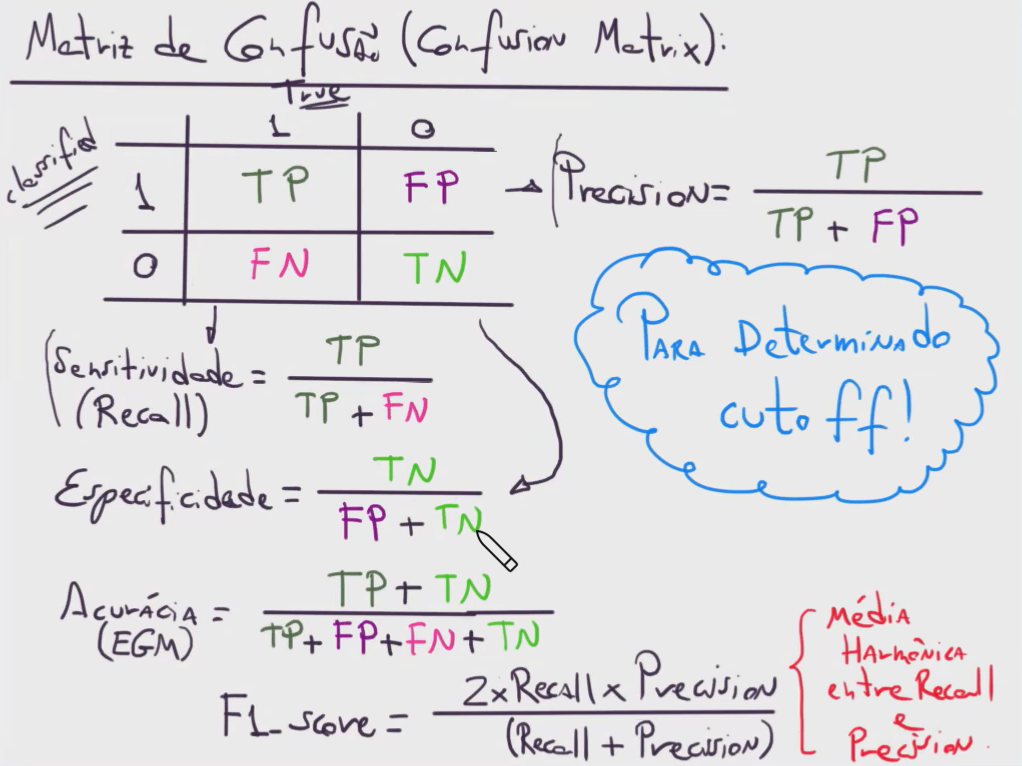 Matriz de Confusão (Confusion Matrix):
True
1 0
Classified
1 TP FP
0 FN TN
→ Precision = TP
TP + FP
Para Determinado
cutoff!
Sensitividade = TP
(Recall) TP + FN
Especificidade = TN
FP + TN
Acurácia = TP + TN
(EGM) TP + FP + FN + TN
F1_score = 2 x Recall x Precision
(Recall + Precision)
Média
Harmônica
entre Recall
e
Precision.